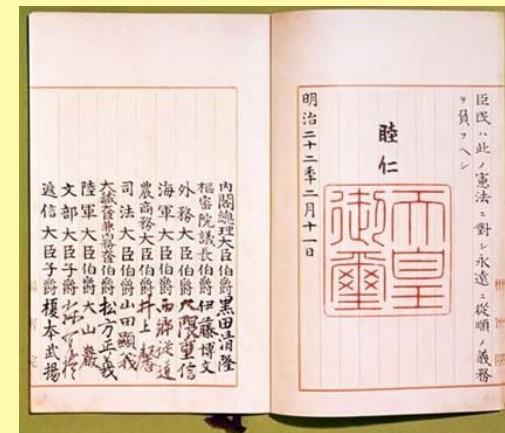 臣民ハ此ノ憲法ニ對シ永遠ニ從順ノ義務
ヲ負フヘシ
睦仁
天皇
御璽
明治二十二年二月十一日
內閣總理大臣伯爵 黒田清隆
樞密院議長伯爵 伊藤博文
外務大臣伯爵 大隈重信
海軍大臣伯爵 西鄕從道
農商務大臣伯爵 井上馨
司法大臣伯爵 山田顯義
大藏大臣兼內務大臣伯爵 松方正義
陸軍大臣伯爵 大山巖
文部大臣子爵 森有禮
遞信大臣子爵 榎本武揚